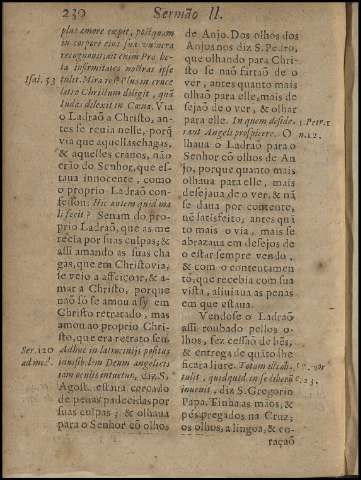 230 Sermão II.
plus amore cœpit, postquam
in corpore ejus sua vulnera
recognovit; at enim Propheta
infirmitates nostras ipse
Isai. 53. tulit. Mira res! Plus in cruce
latro Christum diligit, quã
Iudas dilexit in Cœna. Via
o Ladraõ a Christo, an-
tes se revia nelle, porq̃
via que aquellas chagas,
& aquelles cravos, naõ
eraõ do Senhor, que es-
tava innocente, como
o proprio Ladraõ con-
fessou: Hic autem quid ma-
li fecit? Senam do pro-
prio Ladraõ, que as me-
recia por suas culpas; &
assi amando as suas cha
gas, que em Christo via,
se veio a affeiçoar, & a-
mar a Christo, porque
naõ só se amou a sy em
Christo retratado, mas
amou ao proprio Chri-
sto, que era retrato seu.
Ser. 120. Adhuc in latrocinij positus
ad me.
tam oculis intuetur, diz S.
Agost. estava cercado
de penas padecidas por
suas culpas; & olhava
para o Senhor cõ olhos
de Anjo. Dos olhos dos
Anjos nos diz S. Pedro,
que olhando para Chri-
sto se naõ fartaõ de o
ver, antes quanto mais
olhaõ para elle, mais de
sejaõ de o ver, & olhar
para elle. In quem deside- 1. Petr. 1
rant Angeli prospicere. O n. 12.
lhava o Ladraõ para o
Senhor cõ olhos de An
jo, porque quanto mais
olhava para elle, mais
desejava de o ver, & nã
se dava por contente,
nẽ satisfeito, antes quã
to mais o via, mais se
abrazava em desejos de
o estar sempre vendo,
& com o contentamen
tò, que recebia com sua
vista, aliviava as penas
em que estava.
Vendose o Ladraõ
assi roubado pellos o-
lhos, fez cessaõ de bẽs,
& entrega de quãto lhe
ficara livre. Totum illi ob-
tulit, quidquid in se liberũ c. 23.
invenit, diz S. Gregorio
Papa. Tinha as mãos, &
pés pregados na Cruz;
os olhos, a lingoa, & co-
raçaõ